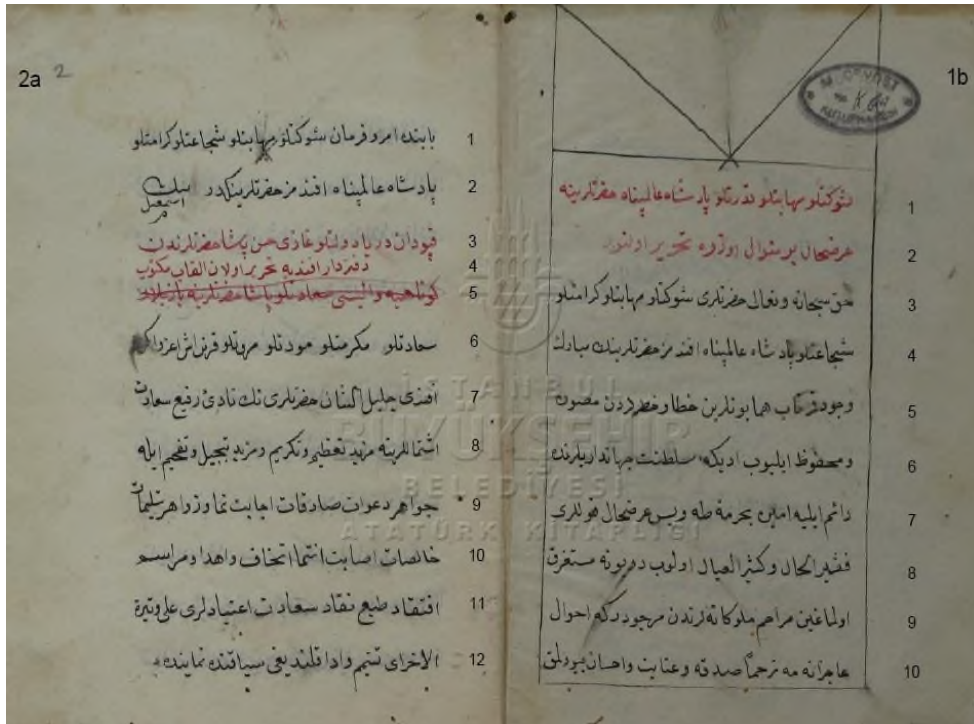 1b
شوكتلو مهابتلو قدرتلو پادشاه عالمپناه حضرتلرينه
1
عرضحال بو منوال اوزره تحرير اولنور
2
حق سبحانه وتعالى حضرتلرى شوكتلو مهابتلو كرامتلو
3
شجاعتلو پادشاه عالمپناه افندمز حضرتلرينك مبارك
4
وجود همايونلرين خطا وخطردن مصون
5
ومحفوظ ايليوب سلطنت جهاندارىلرنده
6
دائم ايليه امين بحرمة طه ويس عرضحال قوللرى
7
فقير الحال وكثير العيال اولوب ديونه مستغرق
8
اولماغين مراحم ملوكانه لرندن مرجودركه احوال
9
عاجزانه مه ترحماً صدقه وعنايت واحسان بيورلمق
10
2a
2
بابنده امر وفرمان شوكتلو مهابتلو شجاعتلو كرامتلو
1
پادشاه عالمپناه افندمز حضرتلرينكدر
2
قپودان دريا دولتلو غازى حسن پاشا حضرتلرندن
3
دفتردار افندى يه تحرير اولان القاب مكتوب
4
كوتاهيه واليسى سعادتلو پاشا حضرتلرينه
5
سعادتلو مكرمتلو مودتلو مروتلو قرنداش اعز
6
افندى جليل الشان حضرتلرى نك نادئ رفيع سعادت
7
اشتماللرينه مزيد تعظيم وتكريم ومزيد تبجيل وتفخيم ايله
8
جواهر دعوات صادقات اجابت نما وزواهر تسليمات
9
خالصات اصابت انتما اتحاف واهدا ومراسم
10
افتقاد طبع نقاد سعادت اعتيادلرى على وتيرة
11
الاخراى تتميم وادا قلنديغى سياقنده نماينده
12
İSTANBUL
BÜYÜKŞEHİR
BELEDİYESİ
ATATÜRK KİTAPLIĞI